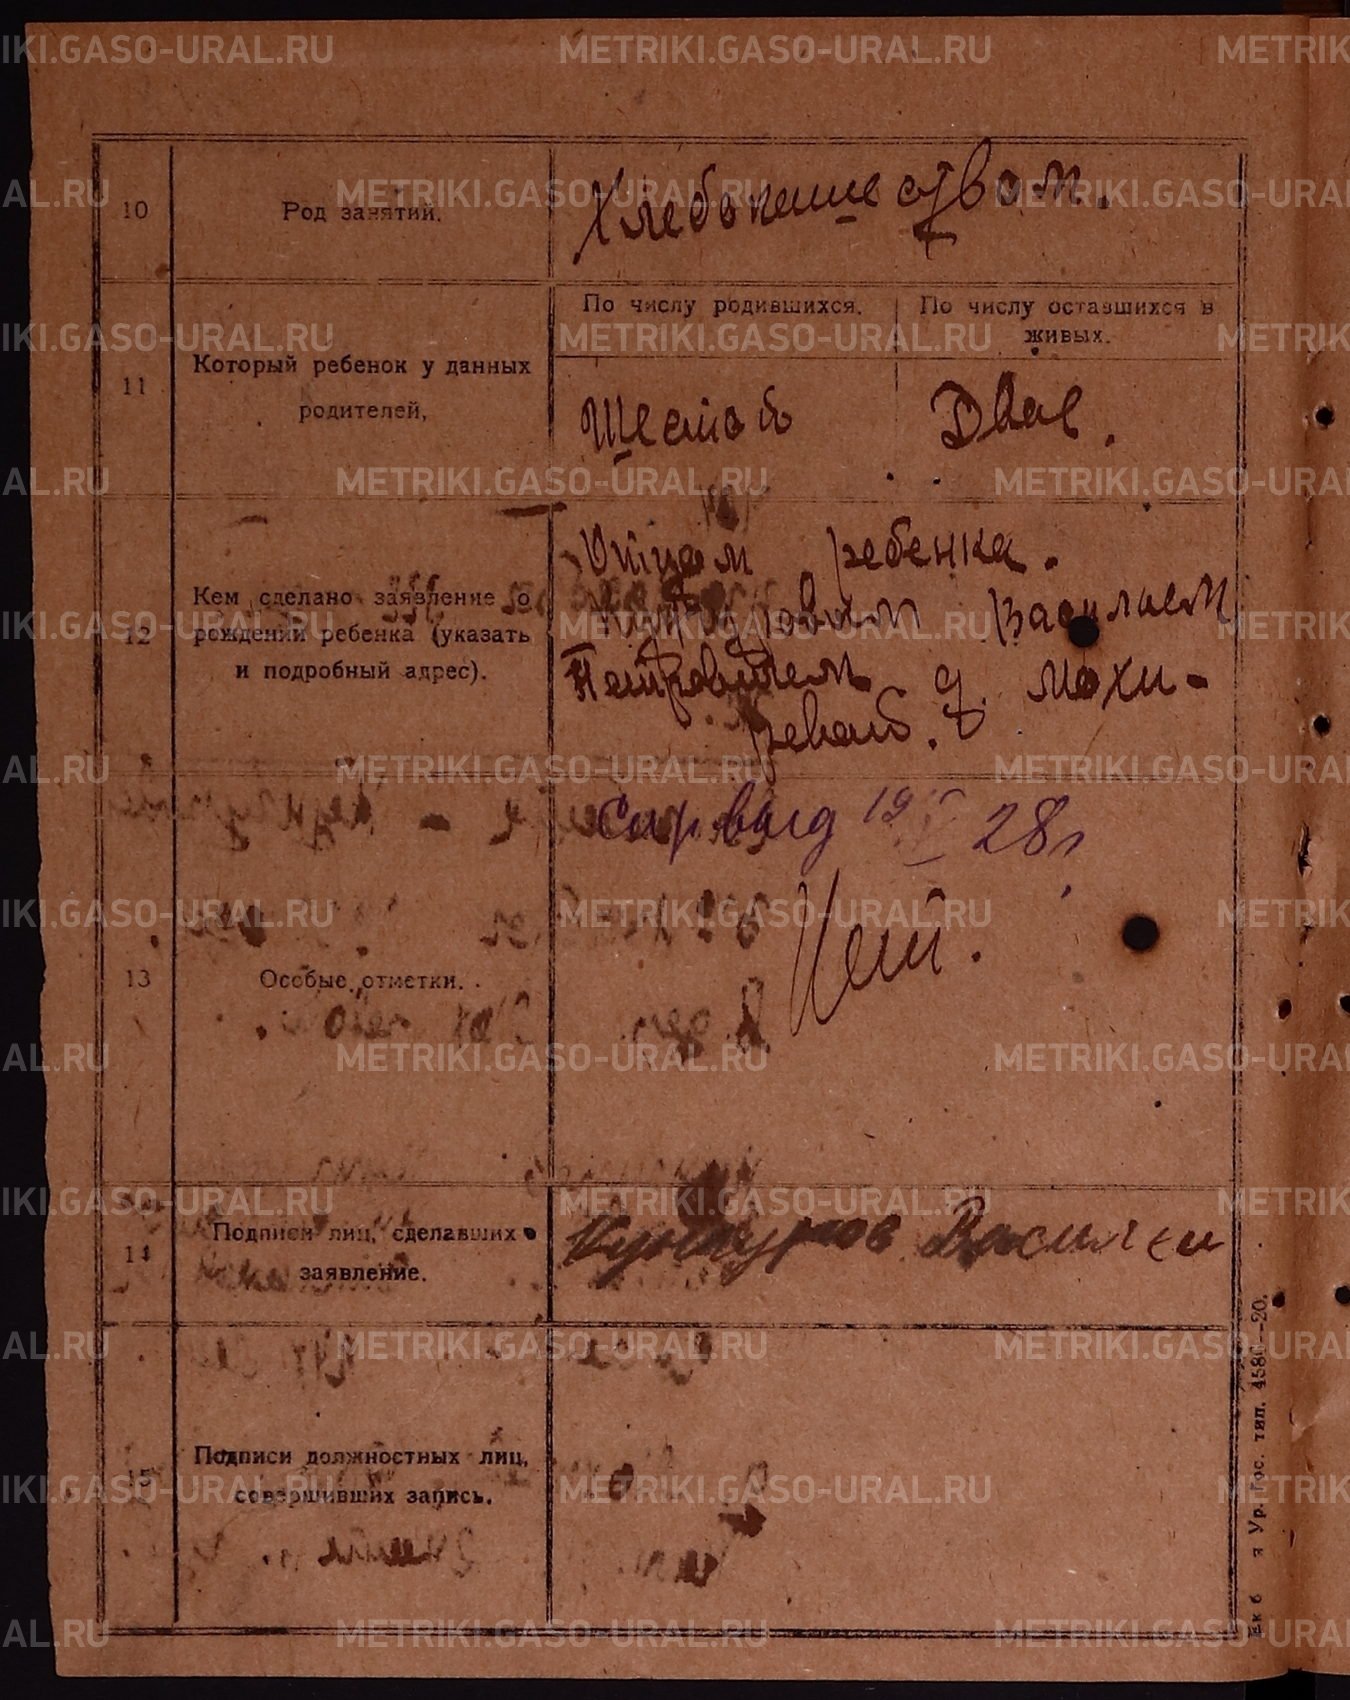 METRIKI.GASO-URAL.RU
10
Род занятий.
Хлебопашеством.
11
Который ребенок у данных
родителей,
По числу родившихся.
По числу оставшихся в
живых.
Шестой
Двое.
12
Кем сделано заявление о
рождении ребенка (указать
и подробный адрес).
Отцом ребенка.
Васильем
Петровичем д. Мохи-
ревой.
13
Особые отметки.
выд 19 V 28 г
Нет.
14
Подписи лиц, сделавших
заявление.
Василеи
15
Подписи должностных лиц,
совершивших запись.
Ур. Гос. тип. 4580—20.